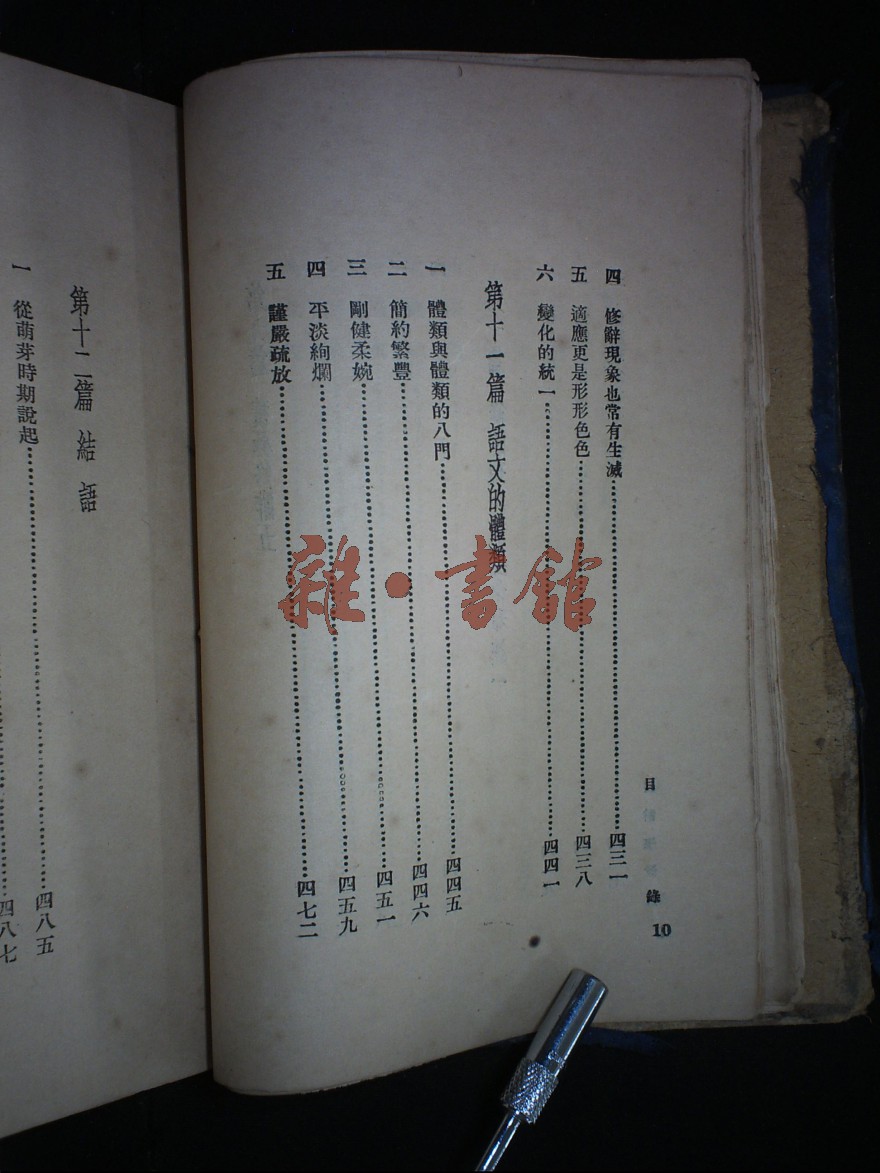 四 修辭現象也常有生滅……四三一
五 適應更是形形色色……四三八
六 變化的統一……四四一
第十一篇 語文的體類
一 體類與體類的八門……四四五
二 簡約繁豐……四四六
三 剛健柔婉……四五一
四 平淡絢爛……四五九
五 謹嚴疏放……四七二
目錄
10
第十二篇 結語
一 從萌芽時期說起……四八五
四八七
雜·書館